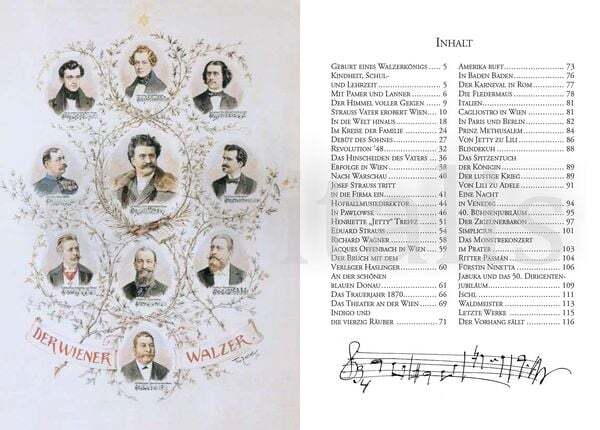 DER WIENER WALZER
INHALT
GEBURT EINES WALZERKÖNIGS ..... 5
KINDHEIT, SCHUL-
UND LEHRZEIT ..... 5
MIT PAMER UND LANNER ..... 6
DER HIMMEL VOLLER GEIGEN ..... 9
STRAUSS VATER EROBERT WIEN.... 10
IN DIE WELT HINAUS ..... 18
IM KREISE DER FAMILIE ..... 24
DEBÜT DES SOHNES ..... 27
REVOLUTION '48 ..... 32
DAS HINSCHEIDEN DES VATERS ... 36
ERFOLGE IN WIEN ..... 38
NACH WARSCHAU ..... 40
JOSEF STRAUSS TRITT
IN DIE FIRMA EIN ..... 41
HOFBALLMUSIKDIREKTOR ..... 44
IN PAWLOWSK ..... 46
HENRIETTE „JETTY" TREFFZ ..... 51
EDUARD STRAUSS ..... 54
RICHARD WAGNER ..... 58
JACQUES OFFENBACH IN WIEN ..... 59
DER BRUCH MIT DEM
VERLEGER HASLINGER ..... 60
AN DER SCHÖNEN
BLAUEN DONAU ..... 61
DAS TRAUERJAHR 1870 ..... 66
DAS THEATER AN DER WIEN ..... 69
INDIGO UND
DIE VIERZIG RÄUBER ..... 71
AMERIKA RUFT ..... 73
IN BADEN BADEN ..... 76
DER KARNEVAL IN ROM ..... 77
DIE FLEDERMAUS ..... 78
ITALIEN ..... 81
CAGLIOSTRO IN WIEN ..... 81
IN PARIS UND BERLIN ..... 82
PRINZ METHUSALEM ..... 84
VON JETTY ZU LILI ..... 86
BLINDEKUH ..... 88
DAS SPITZENTUCH
DER KÖNIGIN ..... 89
DER LUSTIGE KRIEG ..... 89
VON LILI ZU ADELE ..... 91
EINE NACHT
IN VENEDIG ..... 94
40. BÜHNENJUBILÄUM ..... 95
DER ZIGEUNERBARON ..... 97
SIMPLICIUS ..... 101
DAS MONSTREKONZERT
IM PRATER ..... 103
RITTER PÁSMÁN ..... 104
FÜRSTIN NINETTA ..... 106
JABUKA UND DAS 50. DIRIGENTEN-
JUBILÄUM ..... 109
ISCHL ..... 111
WALDMEISTER ..... 113
LETZTE WERKE ..... 115
DER VORHANG FÄLLT ..... 116